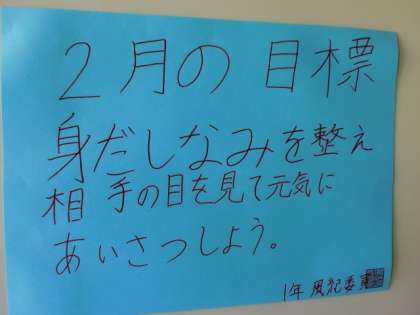 2月の目標
身だしなみを整え
相手の目を見て元気に
あいさつしよう。
1年 風紀委